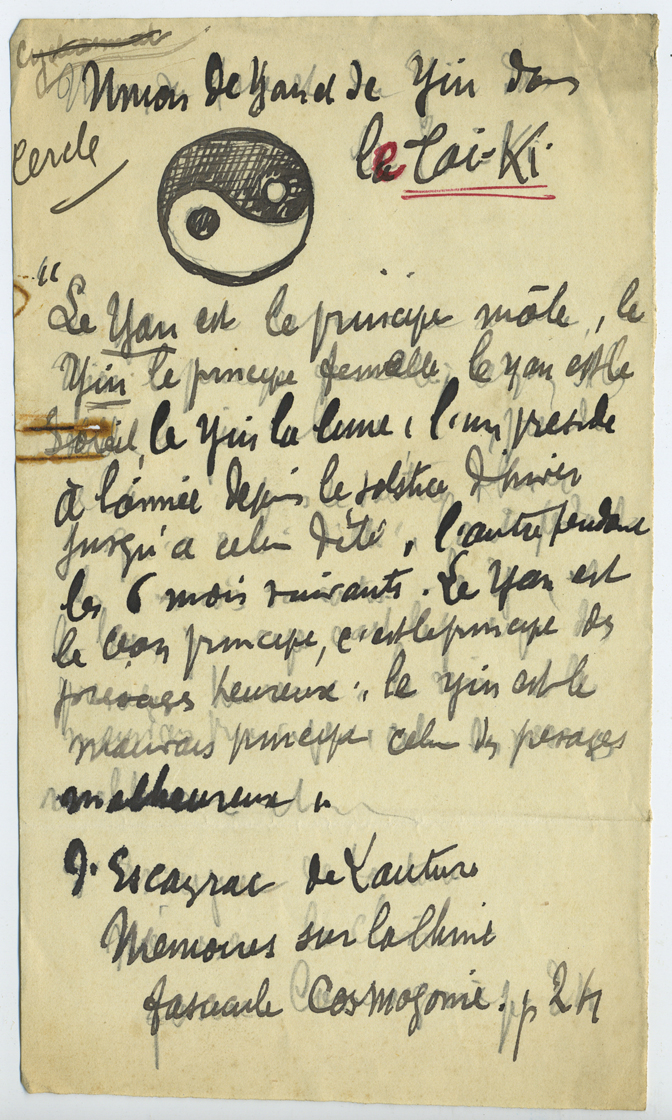 Union de Yan et de Yin dans
Cercle
le Tai-Ki.
"Le Yan est le principe mâle, le
Yin le principe femelle, le yan est le
soleil, le Yin la lune ; l'un préside
à l'année depuis le solstice d'hiver
jusqu'a celui d'été, l'autre pendant
les 6 mois suivants. Le Yan est
le bon principe, c'est le principe des
présages heureux ; le yin est le
mauvais principe celui des présages
malheureux "
D'Escayrac de Lauture
Mémoires sur la Chine
fascicule Cosmogonie. p 24